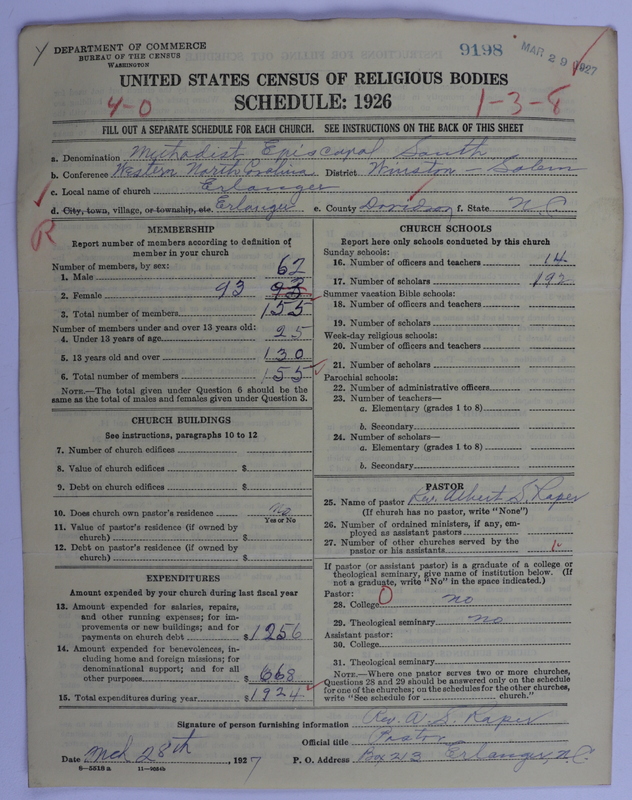 DEPARTMENT OF COMMERCE
BUREAU OF THE CENSUS
WASHINGTON
9198
MAR 29 1927
UNITED STATES CENSUS OF RELIGIOUS BODIES
4-0
SCHEDULE: 1926
1-3-8
FILL OUT A SEPARATE SCHEDULE FOR EACH CHURCH. SEE INSTRUCTIONS ON THE BACK OF THIS SHEET
a. Denomination Methodist Episcopal South
b. Conference Western North Carolina District Winston-Salem
c. Local name of church Erlanger
d. City, town, village, or township, etc. Erlanger e. County Davidson f. State N.C.
R
MEMBERSHIP
Report number of members according to definition of
member in your church
Number of members, by sex:
1. Male 62
2. Female 93 93
3. Total number of members 155
Number of members under and over 13 years old:
4. Under 13 years of age 25
5. 13 years old and over 130
6. Total number of members 155
NOTE.—The total given under Question 6 should be
same as the total of males and females given under Question 3.
CHURCH BUILDINGS
See instructions, paragraphs 10 to 12
7. Number of church edifices
8. Value of church edifices $
9. Debt on church edifices $
10. Does church own pastor's residence no
Yes or No
11. Value of pastor's residence (if owned by
church) $
12. Debt on pastor's residence (if owned by
church) $
EXPENDITURES
Amount expended by your church during last fiscal year
13. Amount expended for salaries, repairs,
and other running expenses; for im-
provements or new buildings; and for
payments on church debt $1256
14. Amount expended for benevolences, in-
cluding home and foreign missions; for
denominational support; and for all
other purposes $ 668
15. Total expenditures during year $1924
CHURCH SCHOOLS
Report here only schools conducted by this church
Sunday schools:
16. Number of officers and teachers 14
17. Number of scholars 192
Summer vacation Bible schools:
18. Number of officers and teachers
19. Number of scholars
Week-day religious schools:
20. Number of officers and teachers
21. Number of scholars
Parochial schools:
22. Number of administrative officers
23. Number of teachers—
a. Elementary (grades 1 to 8)
b. Secondary
24. Number of scholars—
a. Elementary (grades 1 to 8)
b. Secondary
PASTOR
25. Name of pastor Rev. Albert S. Raper
(If church has no pastor, write "None")
26. Number of ordained ministers, if any, em-
ployed as assistant pastors
27. Number of other churches served by the
pastor or his assistants
If pastor (or assistant pastor) is a graduate of a college or
theological seminary, give name of institution below. (If
not a graduate, write "No" in the space indicated.)
Pastor:
28. College 0 no
29. Theological seminary no
Assistant pastor:
30. College
31. Theological seminary
NOTE.—Where one pastor serves two or more churches,
Questions 28 and 29 should be answered only on the schedule
for one of the churches; on the schedules for the other churches,
write "See schedule for church."
Signature of person furnishing information Rev. A. S. Raper
Official title Pastor
Date Mch 28th, 1927 P. O. Address Box 213 Erlanger, N.C.
6—5518 a